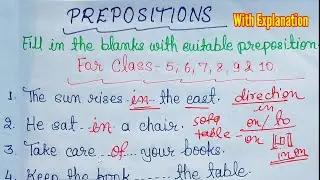 PREPOSITIONS
With Explanation
Fill in the blanks with suitable preposition
For Class - 5, 6, 7, 8, 9 & 10
1. The sun rises in the east. direction
in
2. He sat in a chair. sofa on/to
table - on
3. Take care of your books. in on
4. Keep the book ........ the table.